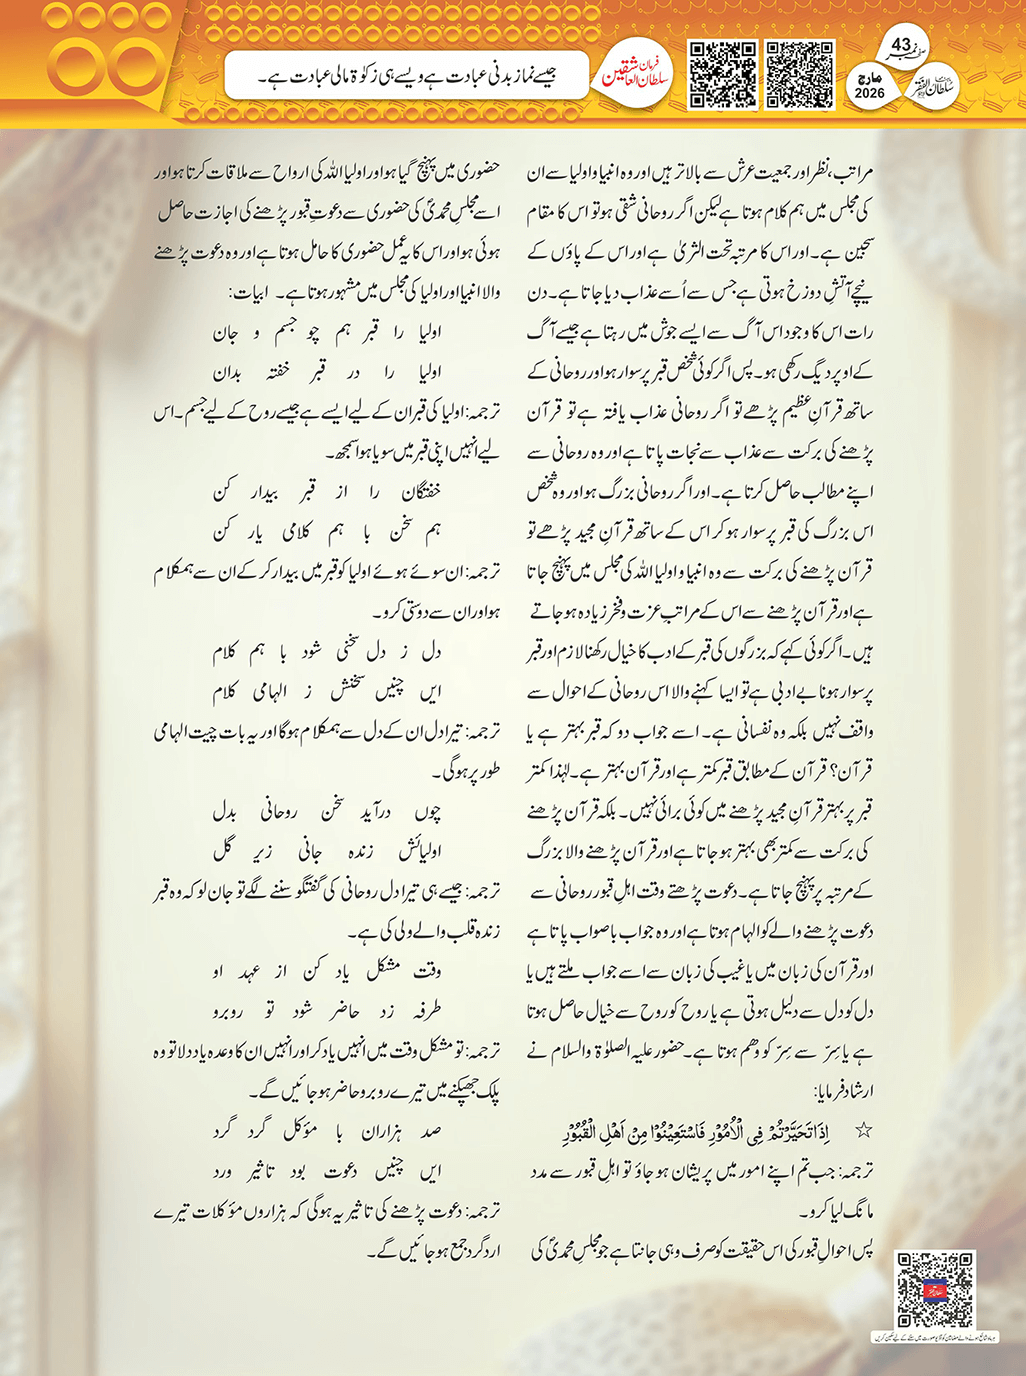 جیسے نماز بدنی عبادت ہے ویسے ہی زکوٰۃ مالی عبادت ہے۔
فرمان
سلطان العاشقین
صفحہ نمبر 43
مارچ
2026
ماہنامہ سلطان الفقر لاہور
مراتب، نظر اور جمعیت عرش سے بالاتر ہیں اور وہ انبیا و اولیا سے ان
کی مجلس میں ہم کلام ہوتا ہے لیکن اگر روحانی شقی ہو تو اس کا مقام
سجین ہے۔ اور اس کا مرتبہ تحت الثریٰ ہے اور اس کے پاؤں کے
نیچے آتشِ دوزخ ہوتی ہے جس سے اُسے عذاب دیا جاتا ہے۔ دن
رات اس کا وجود اس آگ سے ایسے جوش میں رہتا ہے جیسے آگ
کے اوپر دیگ رکھی ہو۔ پس اگر کوئی شخص قبر پر سوار ہو اور روحانی کے
ساتھ قرآنِ عظیم پڑھے تو اگر روحانی عذاب یافتہ ہے تو قرآن
پڑھنے کی برکت سے عذاب سے نجات پاتا ہے اور وہ روحانی سے
اپنے مطالب حاصل کرتا ہے۔ اور اگر روحانی بزرگ ہو اور وہ شخص
اس بزرگ کی قبر پر سوار ہو کر اس کے ساتھ قرآنِ مجید پڑھے تو
قرآن پڑھنے کی برکت سے وہ انبیا و اولیا اللہ کی مجلس میں پہنچ جاتا
ہے اور قرآن پڑھنے سے اس کے مراتب عزت و فخر زیادہ ہو جاتے
ہیں۔ اگر کوئی کہے کہ بزرگوں کی قبر کے ادب کا خیال رکھنا لازم اور قبر
پر سوار ہونا بے ادبی ہے تو ایسا کہنے والا اس روحانی کے احوال سے
واقف نہیں بلکہ وہ نفسانی ہے۔ اسے جواب دو کہ قبر بہتر ہے یا
قرآن؟ قرآن کے مطابق قبر کمتر ہے اور قرآن بہتر ہے۔ لہٰذا کمتر
قبر پر بہتر قرآنِ مجید پڑھنے میں کوئی برائی نہیں۔ بلکہ قرآن پڑھنے
کی برکت سے کمتر بھی بہتر ہو جاتا ہے اور قرآن پڑھنے والا بزرگ
کے مرتبہ پر پہنچ جاتا ہے۔ دعوت پڑھتے وقت اہلِ قبور روحانی سے
دعوت پڑھنے والے کو الہام ہوتا ہے اور وہ جواب باصواب پاتا ہے
اور قرآن کی زبان میں یا غیب کی زبان سے اسے جواب ملتے ہیں یا
دل کو دل سے دلیل ہوتی ہے یا روح کو روح سے خیال حاصل ہوتا
ہے یا سِرّ سے سِرّ کو وھم ہوتا ہے۔ حضور علیہ الصلوٰۃ والسلام نے
ارشاد فرمایا:
☆ اِذَا تَحَیَّرْتُمْ فِی الْاُمُوْرِ فَاسْتَعِیْنُوْا مِنْ اَھْلِ الْقُبُوْرِ
ترجمہ: جب تم اپنے امور میں پریشان ہو جاؤ تو اہلِ قبور سے مدد
مانگ لیا کرو۔
پس احوالِ قبور کی اس حقیقت کو صرف وہی جانتا ہے جو مجلسِ محمدیؐ کی
حضوری میں پہنچ گیا ہو اور اولیا اللہ کی ارواح سے ملاقات کرتا ہو اور
اسے مجلسِ محمدیؐ کی حضوری سے دعوتِ قبور پڑھنے کی اجازت حاصل
ہوئی ہو اور اس کا یہ عمل حضوری کا حامل ہوتا ہے اور وہ دعوت پڑھنے
والا انبیا اور اولیا کی مجلس میں مشہور ہوتا ہے۔ ابیات:
اولیا را قبر ہم چو جسم و جان
اولیا را در قبر خفتہ بدان
ترجمہ: اولیا کی قبر ان کے لیے ایسے ہے جیسے روح کے لیے جسم۔ اس
لیے انہیں اپنی قبر میں سویا ہوا سمجھ۔
خفتگان را از قبر بیدار کن
ہم سخن با ہم کلامی یار کن
ترجمہ: ان سوئے ہوئے اولیا کو قبر میں بیدار کر کے ان سے ہمکلام
ہو اور ان سے دوستی کرو۔
دل ز دل سخنی شود با ہم کلام
ایں چنیں سخنش ز الہامی کلام
ترجمہ: تیرا دل ان کے دل سے ہمکلام ہوگا اور یہ بات چیت الہامی
طور پر ہوگی۔
چوں درآید سخن روحانی بدل
اولیائش زندہ جانی زیرِ گل
ترجمہ: جیسے ہی تیرا دل روحانی کی گفتگو سننے لگے تو جان لو کہ وہ قبر
زندہ قلب والے ولی کی ہے۔
وقت مشکل یاد کن از عہد او
طرفہ زد حاضر شود تو روبرو
ترجمہ: تو مشکل وقت میں انہیں یاد کر اور انہیں ان کا وعدہ یاد دلا تو وہ
پلک جھپکنے میں تیرے روبرو حاضر ہو جائیں گے۔
صد ہزاران با مؤکل گرد گرد
ایں چنیں دعوت بود تاثیر ورد
ترجمہ: دعوت پڑھنے کی تاثیر یہ ہوگی کہ ہزاروں مؤکلات تیرے
اردگرد جمع ہو جائیں گے۔